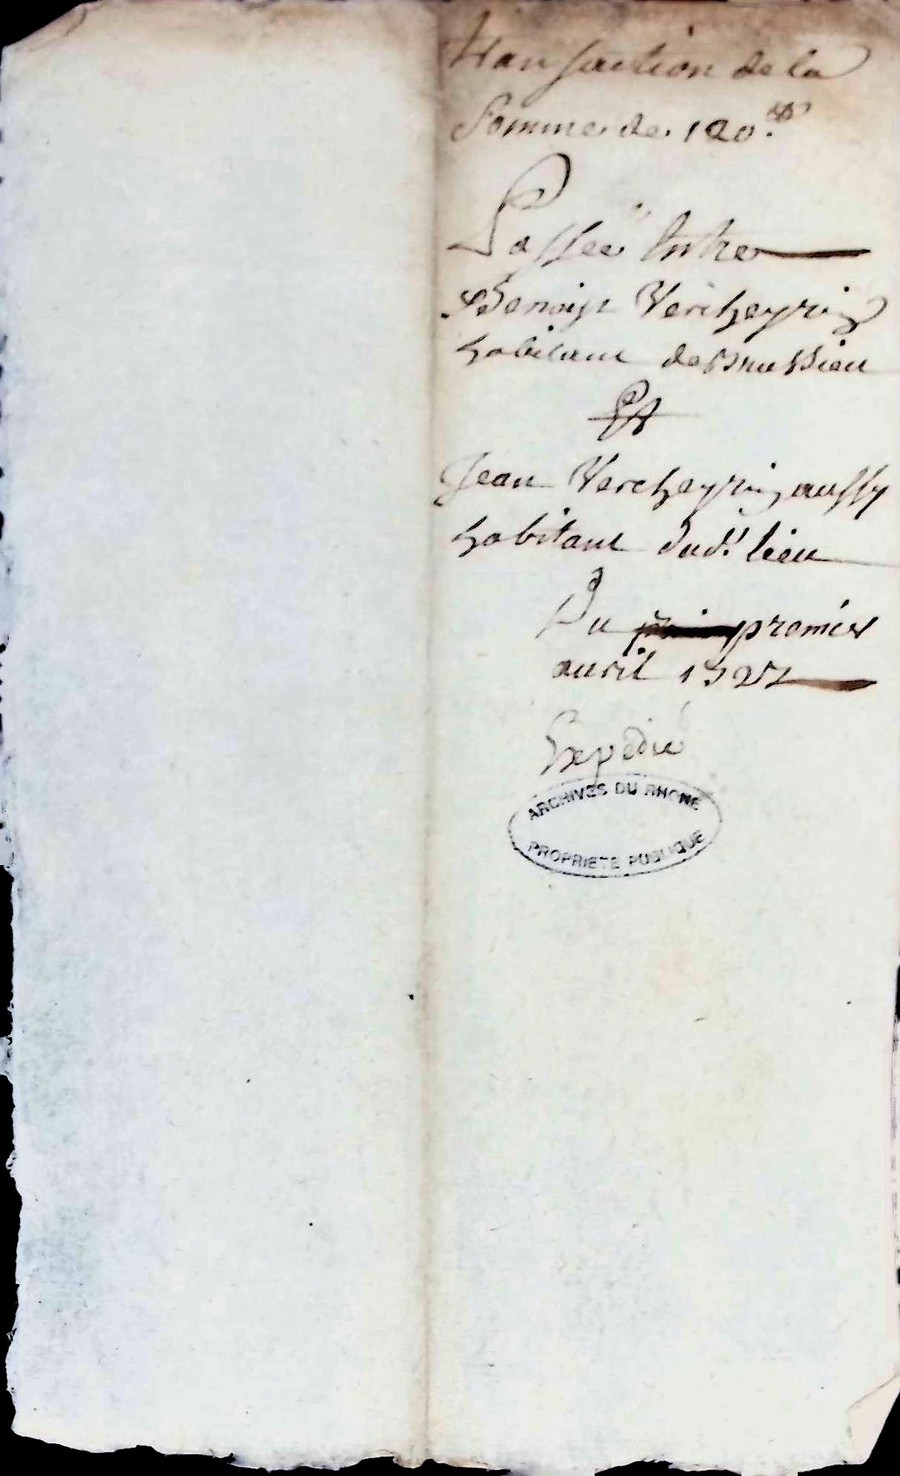 transaction de la
Somme de 120.tt
Passée Entre
Benoist Vercheyrin
habitant de Brussieu
Et
Jean Vercheyrin aussy
habitant dud.t lieu
Du premier
avril 1727
Expedié
ARCHIVES DU RHONE
PROPRIETE PUBLIQUE